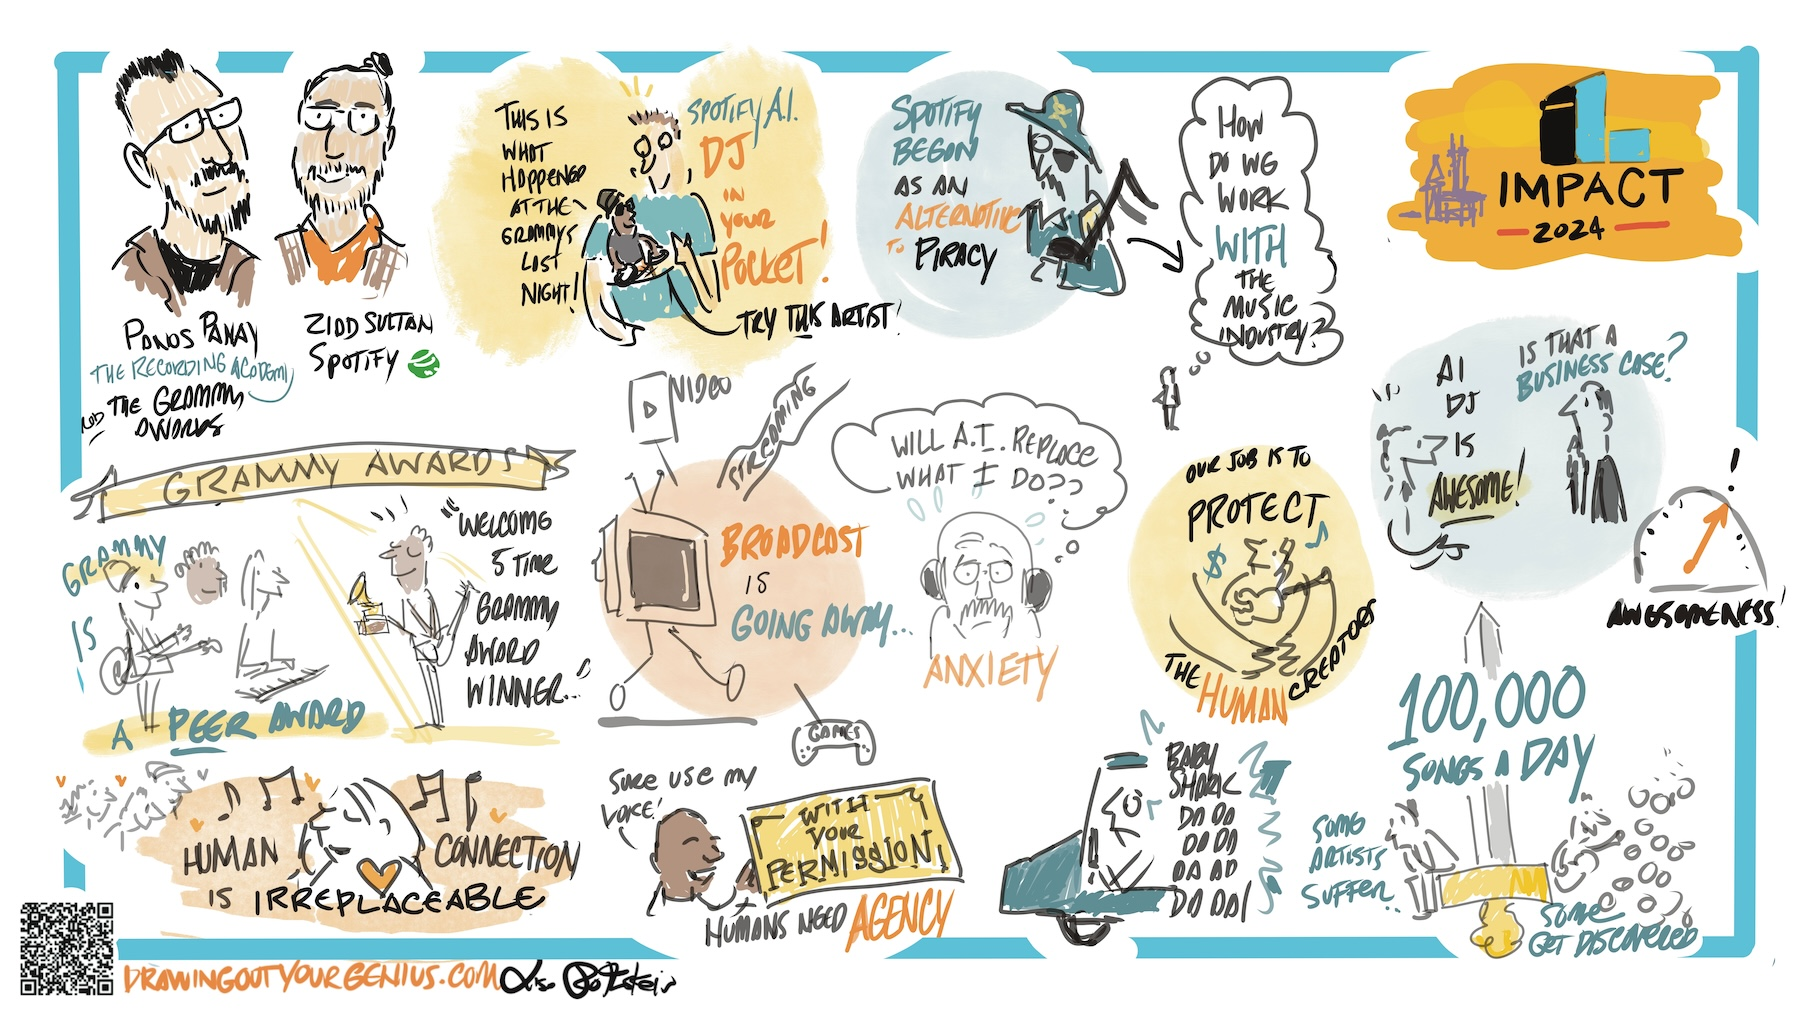 PANOS PANAY
THE RECORDING ACADEMY
AND THE GRAMMY
AWARDS
ZIAD SULTAN
SPOTIFY
THIS IS
WHAT
HAPPENED
AT THE
GRAMMYS
LAST
NIGHT!
SPOTIFY A.I.
DJ
IN
YOUR
POCKET!
TRY THIS ARTIST!
SPOTIFY
BEGAN
AS AN
ALTERNATIVE
TO PIRACY
HOW
DO WE
WORK
WITH
THE
MUSIC
INDUSTRY?
IMPACT
2024
GRAMMY AWARDS
GRAMMY
IS
A PEER AWARD
"WELCOME
5 TIME
GRAMMY
AWARD
WINNER..."
VIDEO
STREAMING
BROADCAST
IS
GOING AWAY...
GAMES
WILL A.I. REPLACE
WHAT I DO??
ANXIETY
OUR JOB IS TO
PROTECT
$
THE HUMAN CREATORS
AI
DJ
IS
AWESOME!
IS THAT A
BUSINESS CASE?
!
AWESOMENESS!
HUMAN CONNECTION
IS IRREPLACEABLE
SURE USE MY
VOICE!
WITH
YOUR
PERMISSION!
HUMANS NEED AGENCY
BABY
SHARK
DA DA
DA DA
DA DA
DA DA!
100,000
SONGS A DAY
SOME
ARTISTS
SUFFER..
SOME
GET DISCOVERED
DRAWINGOUTYOURGENIUS.COM Lisa Rothstein